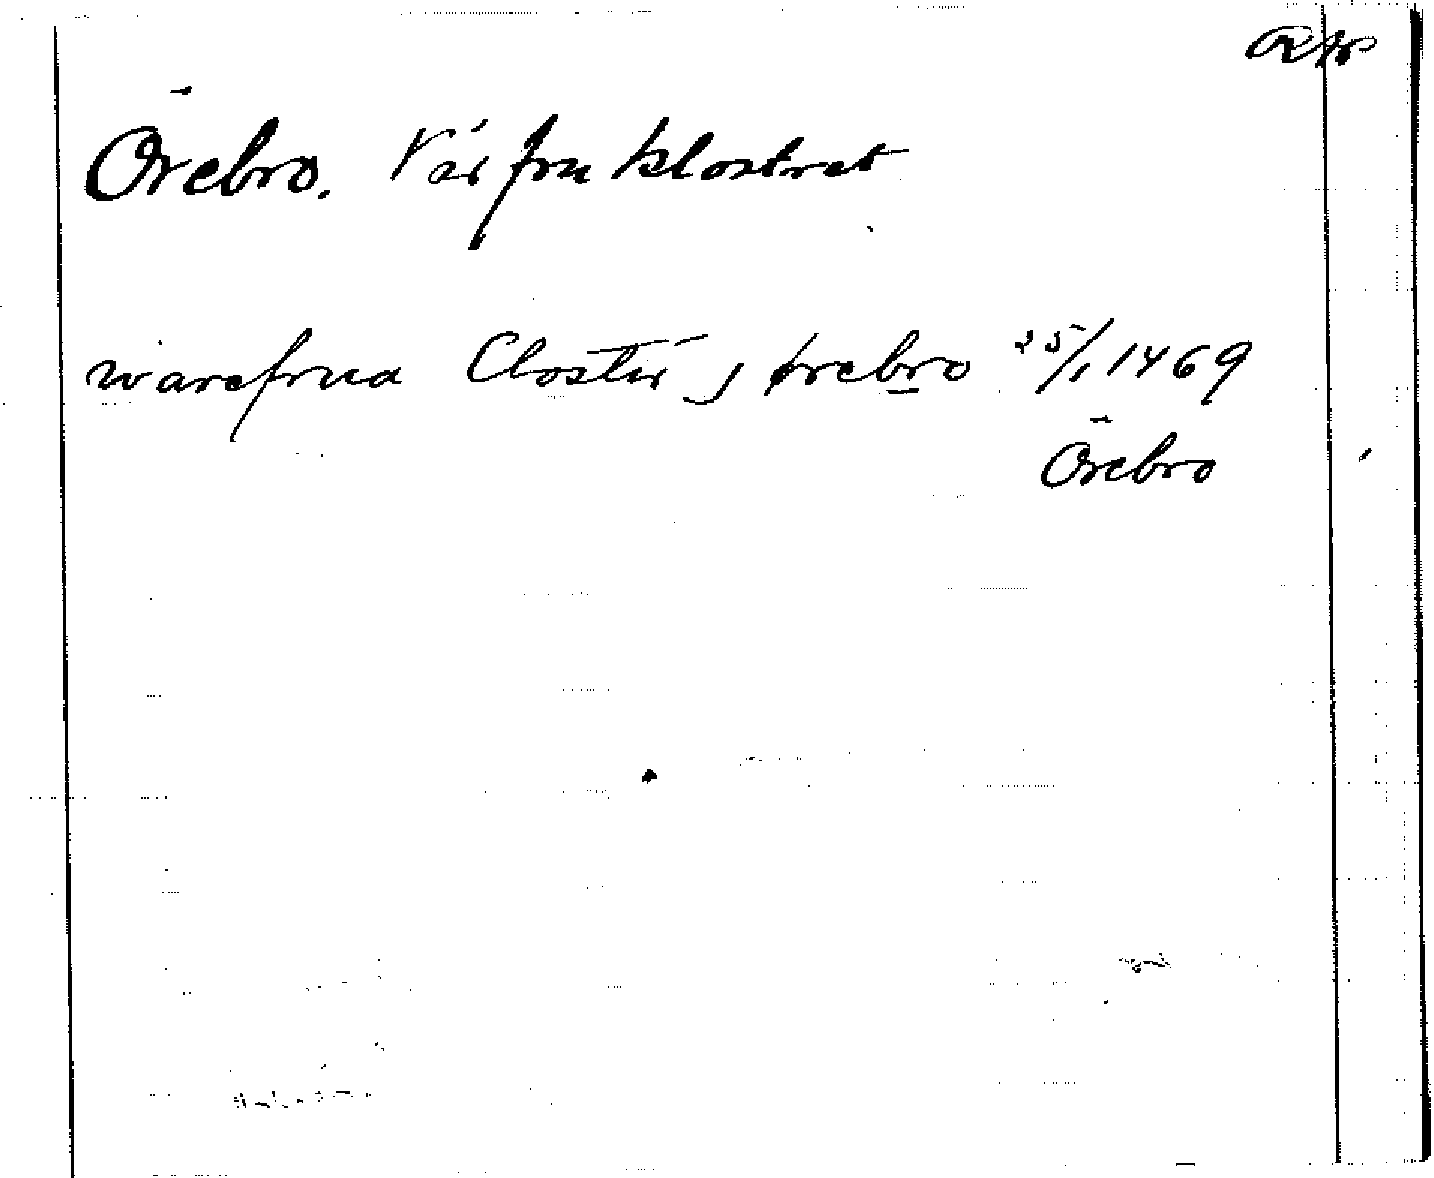 Örebro. Vår fru klostret
warefrua Closter j ørebro 25/1 1469
Örebro